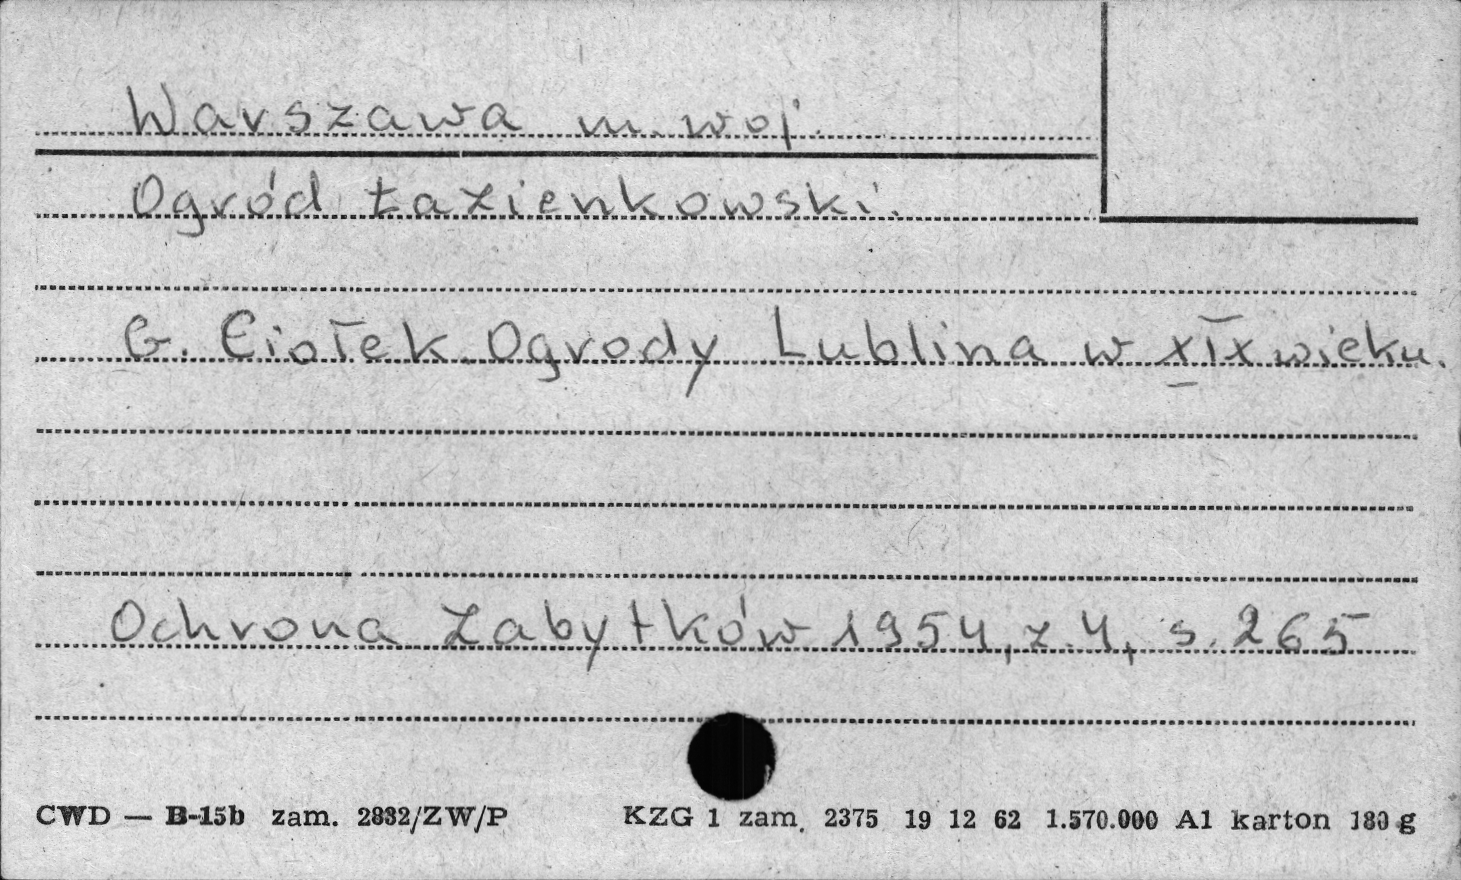 Warszawa m. woj.
Ogród Łazienkowski.
G. Ciołek Ogrody Lublina w XIX wieku.
Ochrona Zabytków 1954, z. 4, s. 265
CWD — B-15b zam. 2832/ZW/P KZG 1 zam. 2375 19 12 62 1.570.000 A1 karton 180 g